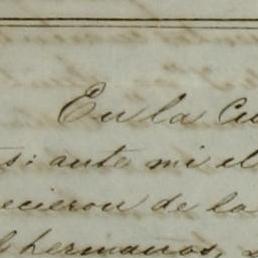 En la Cu
s: ante mi el
ecieron de la
hermanos,